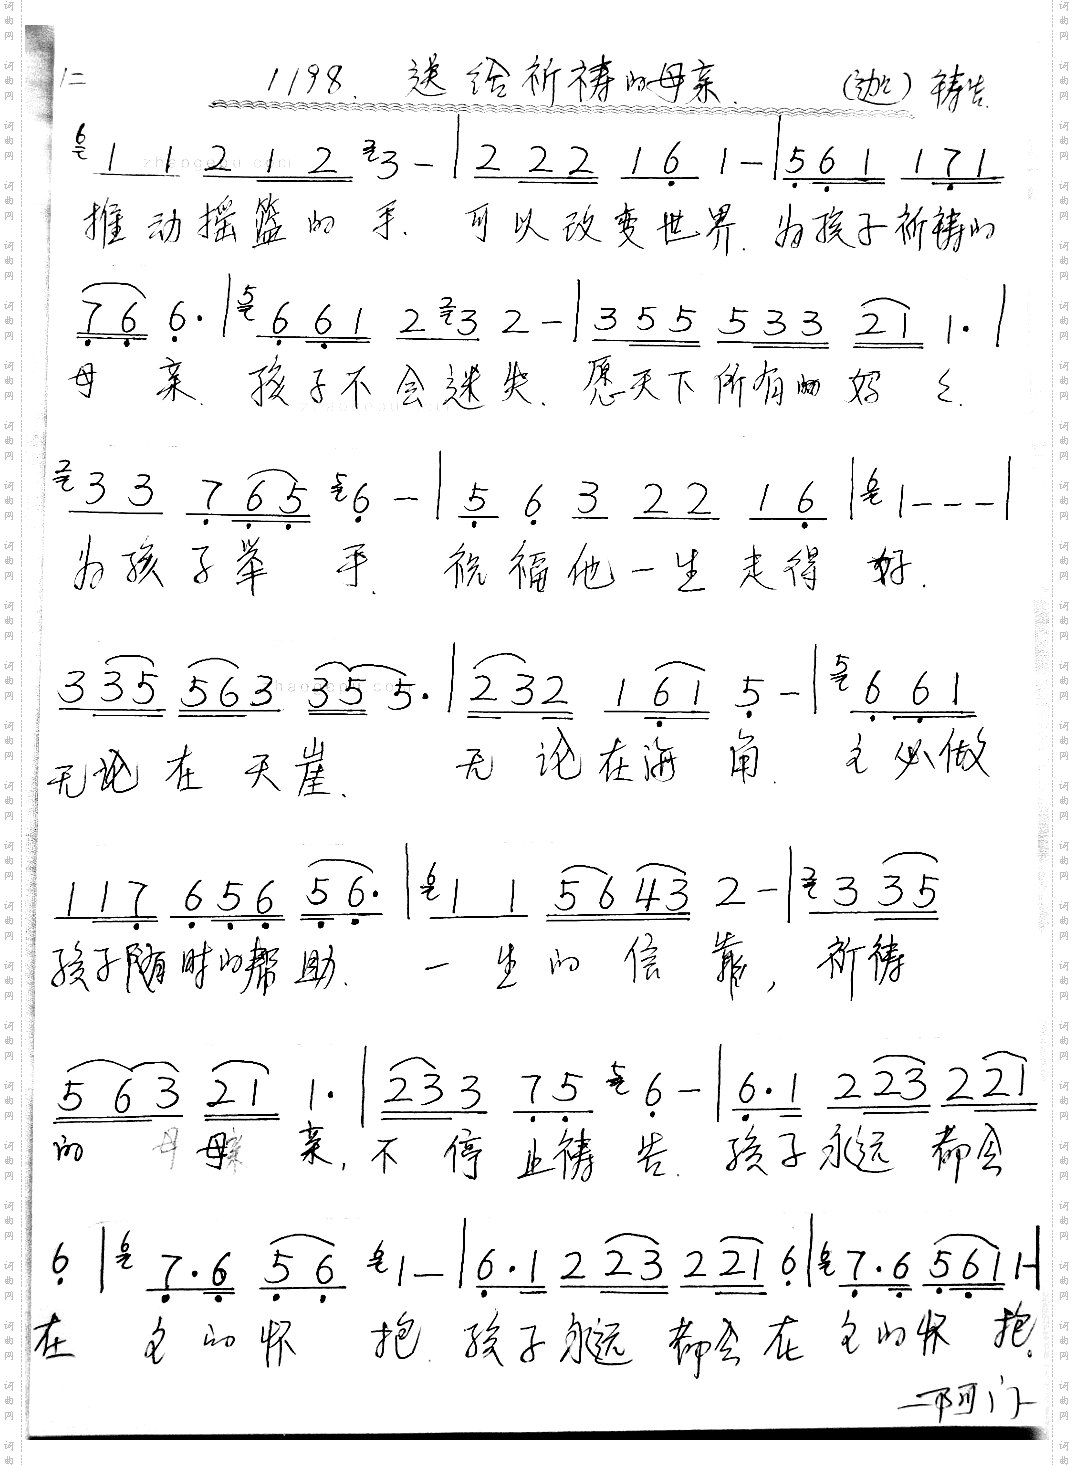 1= 1198. 送给祈祷的母亲. (迦) 祷告.
6 1 1 2 1 2 2 3 - | 2 2 2 1 6 1 - | 5 6 1 1 7 1
推动摇篮的手. 可以改变世界. 为孩子祈祷的
7 6 6 · | 5 6 6 1 2 2 3 2 - | 3 5 5 5 3 3 2 1 1 · |
母亲. 孩子不会迷失. 愿天下所有的妈く.
2 3 3 7 6 5 5 6 - | 5 6 3 2 2 1 6 | 6 1 - - - |
为孩子举手. 祝福他一生走得好.
3 3 5 5 6 3 3 5 5 · | 2 3 2 1 6 1 5 - | 5 6 6 1
无论在天崖. 无论在海角. 主必做
1 1 7 6 5 6 5 6 · | 6 1 1 5 6 4 3 2 - | 2 3 3 5
孩子随时的帮助. 一生的信靠, 祈祷
5 6 3 2 1 1 · | 2 3 3 7 5 5 6 - | 6 · 1 2 2 3 2 2 1
的母亲, 不停止祷告. 孩子永远都会
6 | 6 7 · 6 5 6 6 1 - | 6 · 1 2 2 3 2 2 1 6 | 6 7 · 6 5 6 1 1 -
在主的怀抱. 孩子永远都会在主的怀抱.
—阿门
词曲网